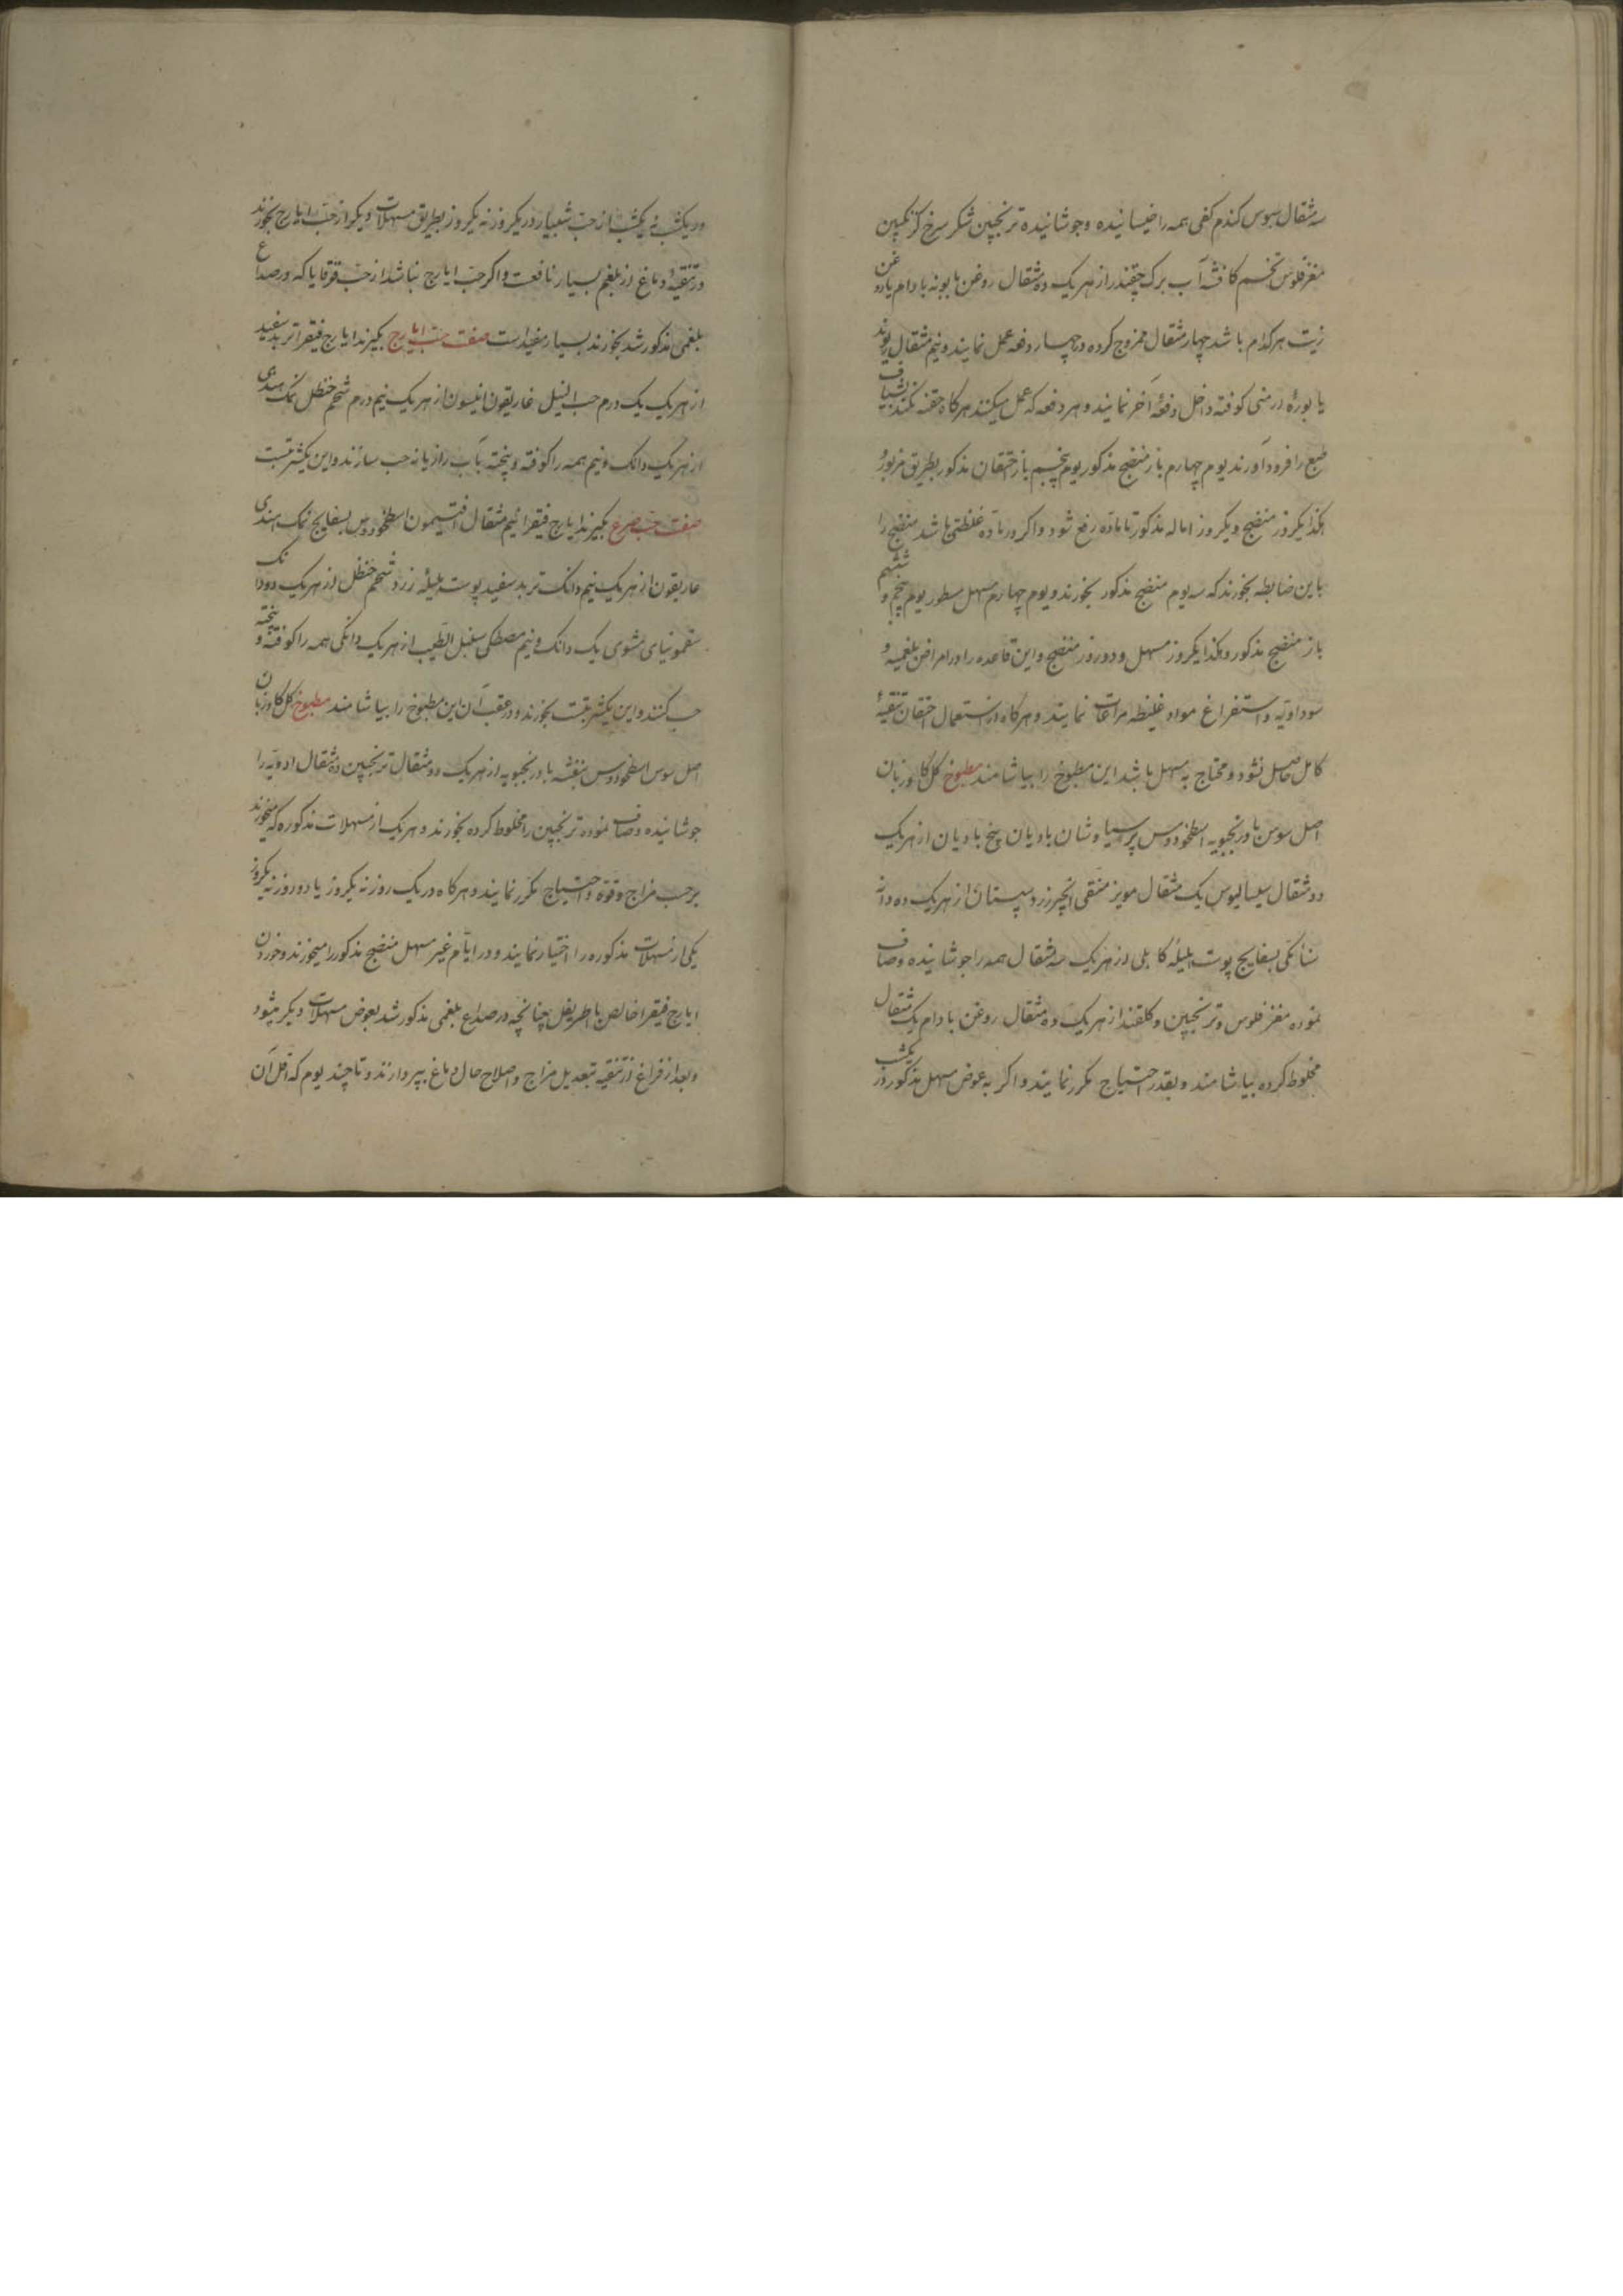 سه مثقال سبوس کندم کفی همه را خیسانیده و جوشانیده ترنجبین شکر سرخ کزنکبین
مغز فلوس تخم کافشه آب برک چقندر از هر یک ده مثقال روغن بابونه بادام یا روغن
زیت هر کدام باشد چهار مثقال ممزوج کرده در چهار دفعه عمل نمایند و نیم مثقال ریوند
یا بوره ارمنی کوفته داخل دفعهٔ آخر نمایند و هر دفعه که عمل میکنند هرکاه حقنه نکنند بشیاف
طبع را فرود آورند یوم چهارم باز منضج مذکور یوم پنجم باز احتقان مذکور بطریق مزبور
هکذا یکروز منضج و یکروز اماله مذکور تا ماده رفع شود و اکر در ماده غلظتی باشد منضج را
باین ضابطه بخورند که سه یوم منضج مذکور بخورند و یوم چهارم مسهل مسطور یوم پنجم و ششم
باز منضج مذکور و هکذا یکروز مسهل و دو روز منضج و این قاعده را در امراض بلغمیه و
سوداویه و استفراغ مواد غلیظه مراعات نمایند و هرکاه از استعمال احتقان تنقیهٔ
کامل حاصل نشود و محتاج به مسهل باشد این مطبوخ را بیاشامند مطبوخ کل کاوزبان
اصل سوس بادرنجبویه اسطخودوس پرسیاوشان بادیان بیخ بادیان از هر یک
دو مثقال سیسالیوس یک مثقال مویز منقی انجیر زرد سپستان از هر یک ده دانه
سنا مکی بسفایج پوست هلیلهٔ کابلی از هر یک سه مثقال همه را جوشانیده و صاف
نموده مغز فلوس و ترنجبین و کلقند از هر یک ده مثقال روغن بادام یک مثقال
مخلوط کرده بیاشامند و بقدر احتیاج مکرر نمایند و اکر به عوض مسهل مذکور در یکشب
در یکشب نه یکشب از حب شبیار در یکروز نه یکروز بطریق مسهلات دیکر از حب ایارج بخورند
در تنقیهٔ دماغ از بلغم بسیار نافعست و اکر حب ایارج نباشد از حب قوقایا که در صداع
بلغمی مذکور شد بخورند بسیار مفید است صفت حب ایارج بکیرند ایارج فیقرا تربد سفید
از هر یک یک درم حب النیل غاریقون انیسون از هر یک نیم درم شحم حنظل نمک هندی
از هر یک دانک و نیم همه را کوفته و بیخته بآب رازیانه حب سازند و این یکشربتست
صفت حب صرع بکیرند ایارج فیقرا نیم مثقال افتیمون اسطخودوس بسفایج نمک هندی
غاریقون از هر یک نیم دانک تربد سفید پوست هلیلهٔ زرد شحم حنظل از هر یک دو دانک
سقمونیای مشوی یک دانک و نیم مصطکی سنبل الطیب از هر یک دانکی همه را کوفته و بیخته
حب کنند و این یکشربتست بخورند و در عقب آن این مطبوخ را بیاشامند مطبوخ کل کاوزبان
اصل سوس اسطخودوس بنفشه بادرنجبویه از هر یک دو مثقال ترنجبین ده مثقال ادویه را
جوشانیده و صاف نموده ترنجبین را مخلوط کرده بخورند و هر یک از مسهلات مذکوره که میخورند
برحسب مزاج و قوة و احتیاج مکرر نمایند و هرکاه در یک روز نه یکروز یا دو روز نه یکروز
یکی از مسهلات مذکوره را اختیار نمایند و در ایام غیر مسهل منضج مذکور را میخورند و خوردن
ایارج فیقرا خالص با اطریفل چنانچه در صداع بلغمی مذکور شد بعوض مسهلات دیکر میشود
و بعد از فراغ از تنقیه بتعدیل مزاج و اصلاح حال دماغ بپردازند و تا چند یوم که اقل آن